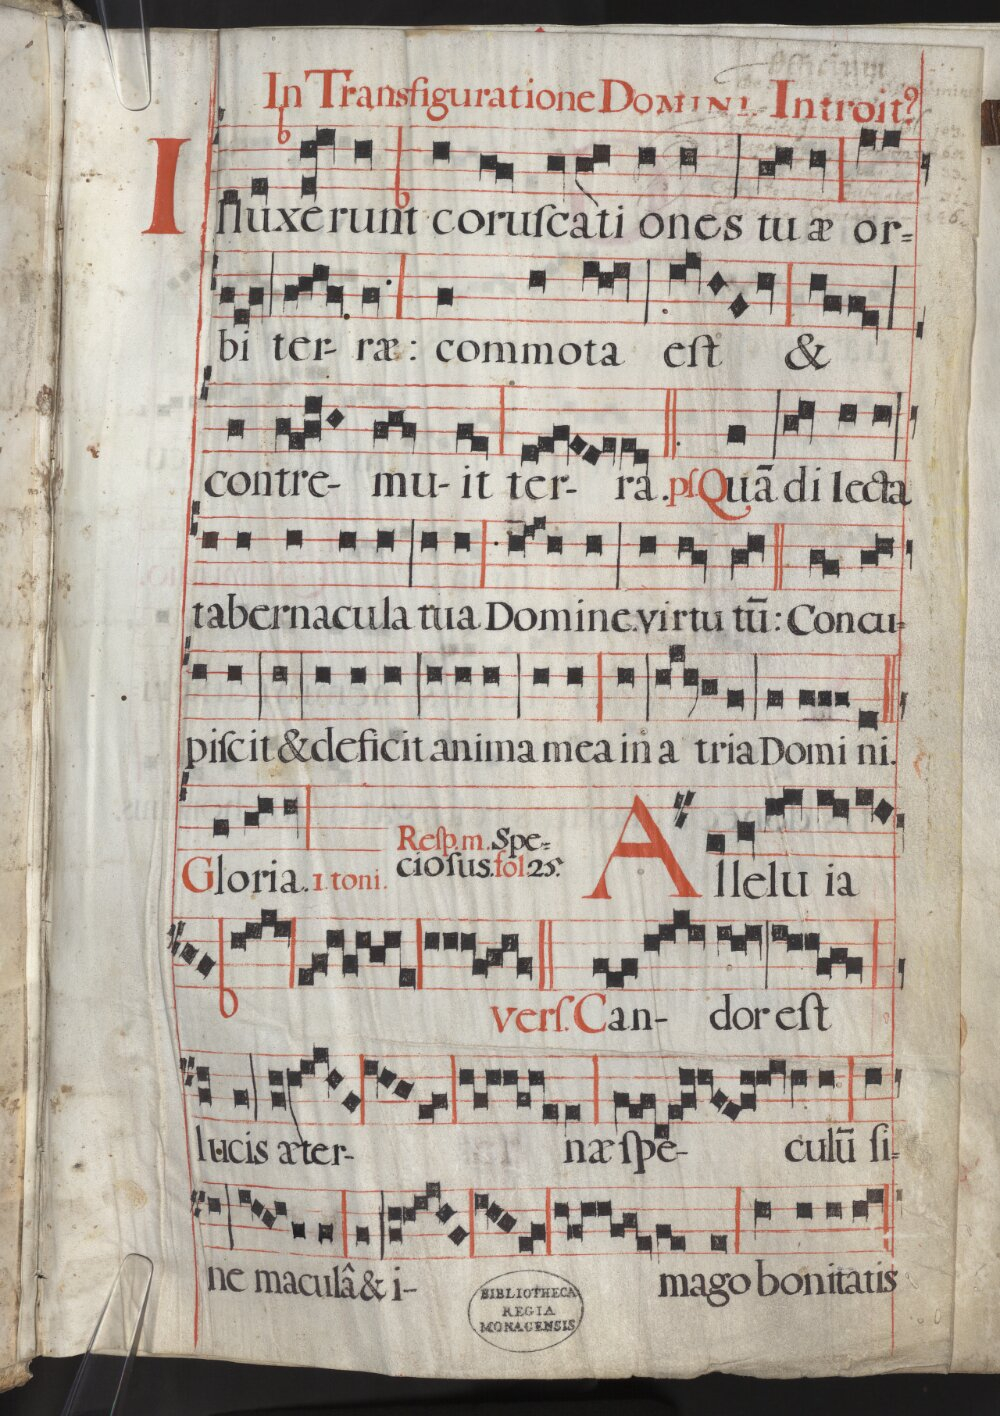 In Transfiguratione DOMINI. Introit9
Illuxerunt coruſcati ones tuæ or=
bi ter- ræ: commota eſt &
contre- mu- it ter- ra. pſ Quã di lecta
tabernacula tua Domine virtu tũ: Concu-
piſcit & deficit anima mea in a tria Domi ni.
Gloria. 1. toni. Reſp. m. Spe=
cioſus. fol 25. Allelu ia
verſ. Can- dor eſt
lucis æter- næ ſpe- culũ ſi=
ne maculâ & i- mago bonitatis
BIBLIOTHECA
REGIA
MONACENSIS